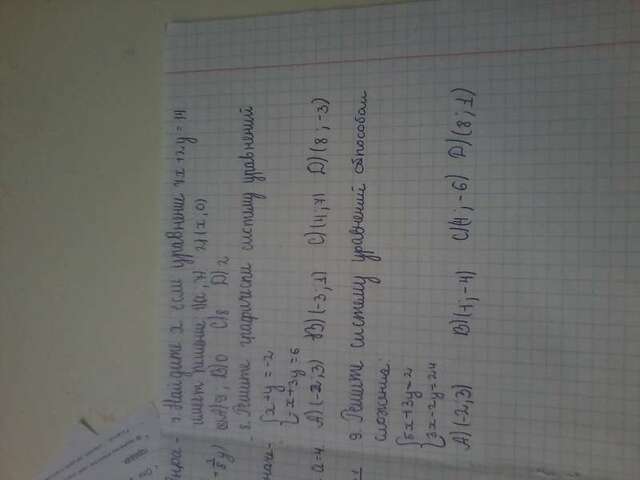 нра-
7. Найдите x если уравнение 7x+2y=14
имеет решение 1)(x, 7) 2)(x, 0)
A) 9; B) 0 C) 8 D) 2
8. Решите графически систему уравнений
x+y=-2
-x+3y=6
A) (-2; 3) B) (-3; 1) C) (4; 7) D) (8; -3)
наче-
a=4
9. Решите систему уравнений способом
сложения:
5x+3y=2
3x-2y=24
A) (-2; 3) B) (1; -4) C) (4; -6) D) (8; 1)